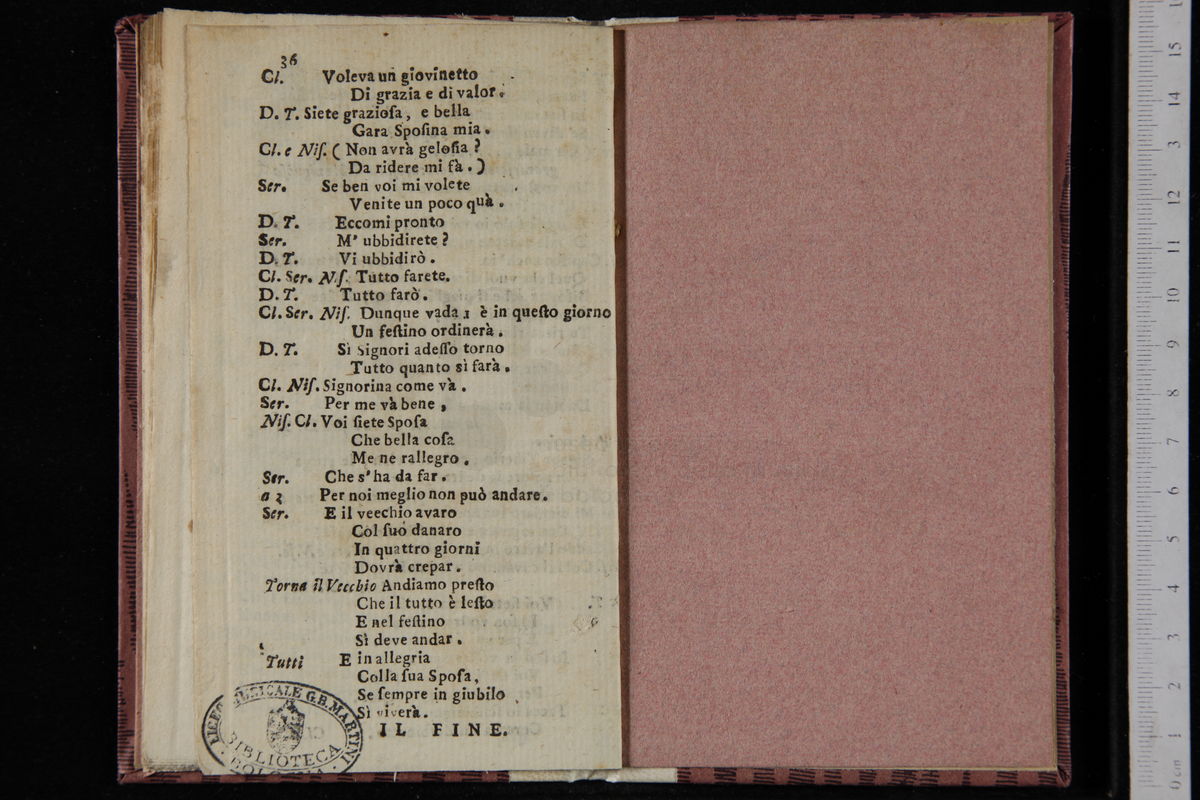 36
Cl. Voleva un giovinetto
Di grazia e di valor.
D. T. Siete graziosa, e bella
Gara Sposina mia.
Cl. e Nis. ( Non avrà gelosia ?
Da ridere mi fà. )
Ser. Se ben voi mi volete
Venite un poco quà.
D. T. Eccomi pronto
Ser. M' ubbidirete ?
D. T. Vi ubbidirò.
Cl. Ser. Nis. Tutto farete.
D. T. Tutto farò.
Cl. Ser. Nis. Dunque vada, è in questo giorno
Un festino ordinerà.
D. T. Sì Signori adesso torno
Tutto quanto sì farà.
Cl. Nis. Signorina come và.
Ser. Per me và bene,
Nis. Cl. Voi siete Sposa
Che bella cosa
Me ne rallegro.
Ser. Che s' ha da far.
a 3 Per noi meglio non può andare.
Ser. E il veechio avaro
Col suo danaro
In quattro giorni
Dovrà crepar.
Torna il Vecchio Andiamo presto
Che il tutto è lesto
E nel festino
Sì deve andar.
Tutti E in allegria
Colla sua Sposa,
Se sempre in giubilo
Sì viverà.
IL FINE.
LICEO MUSICALE G.B. MARTINI
BIBLIOTECA
BOLOGNA
15
14
13
12
11
10
9
8
7
6
5
4
3
2
1
0 cm